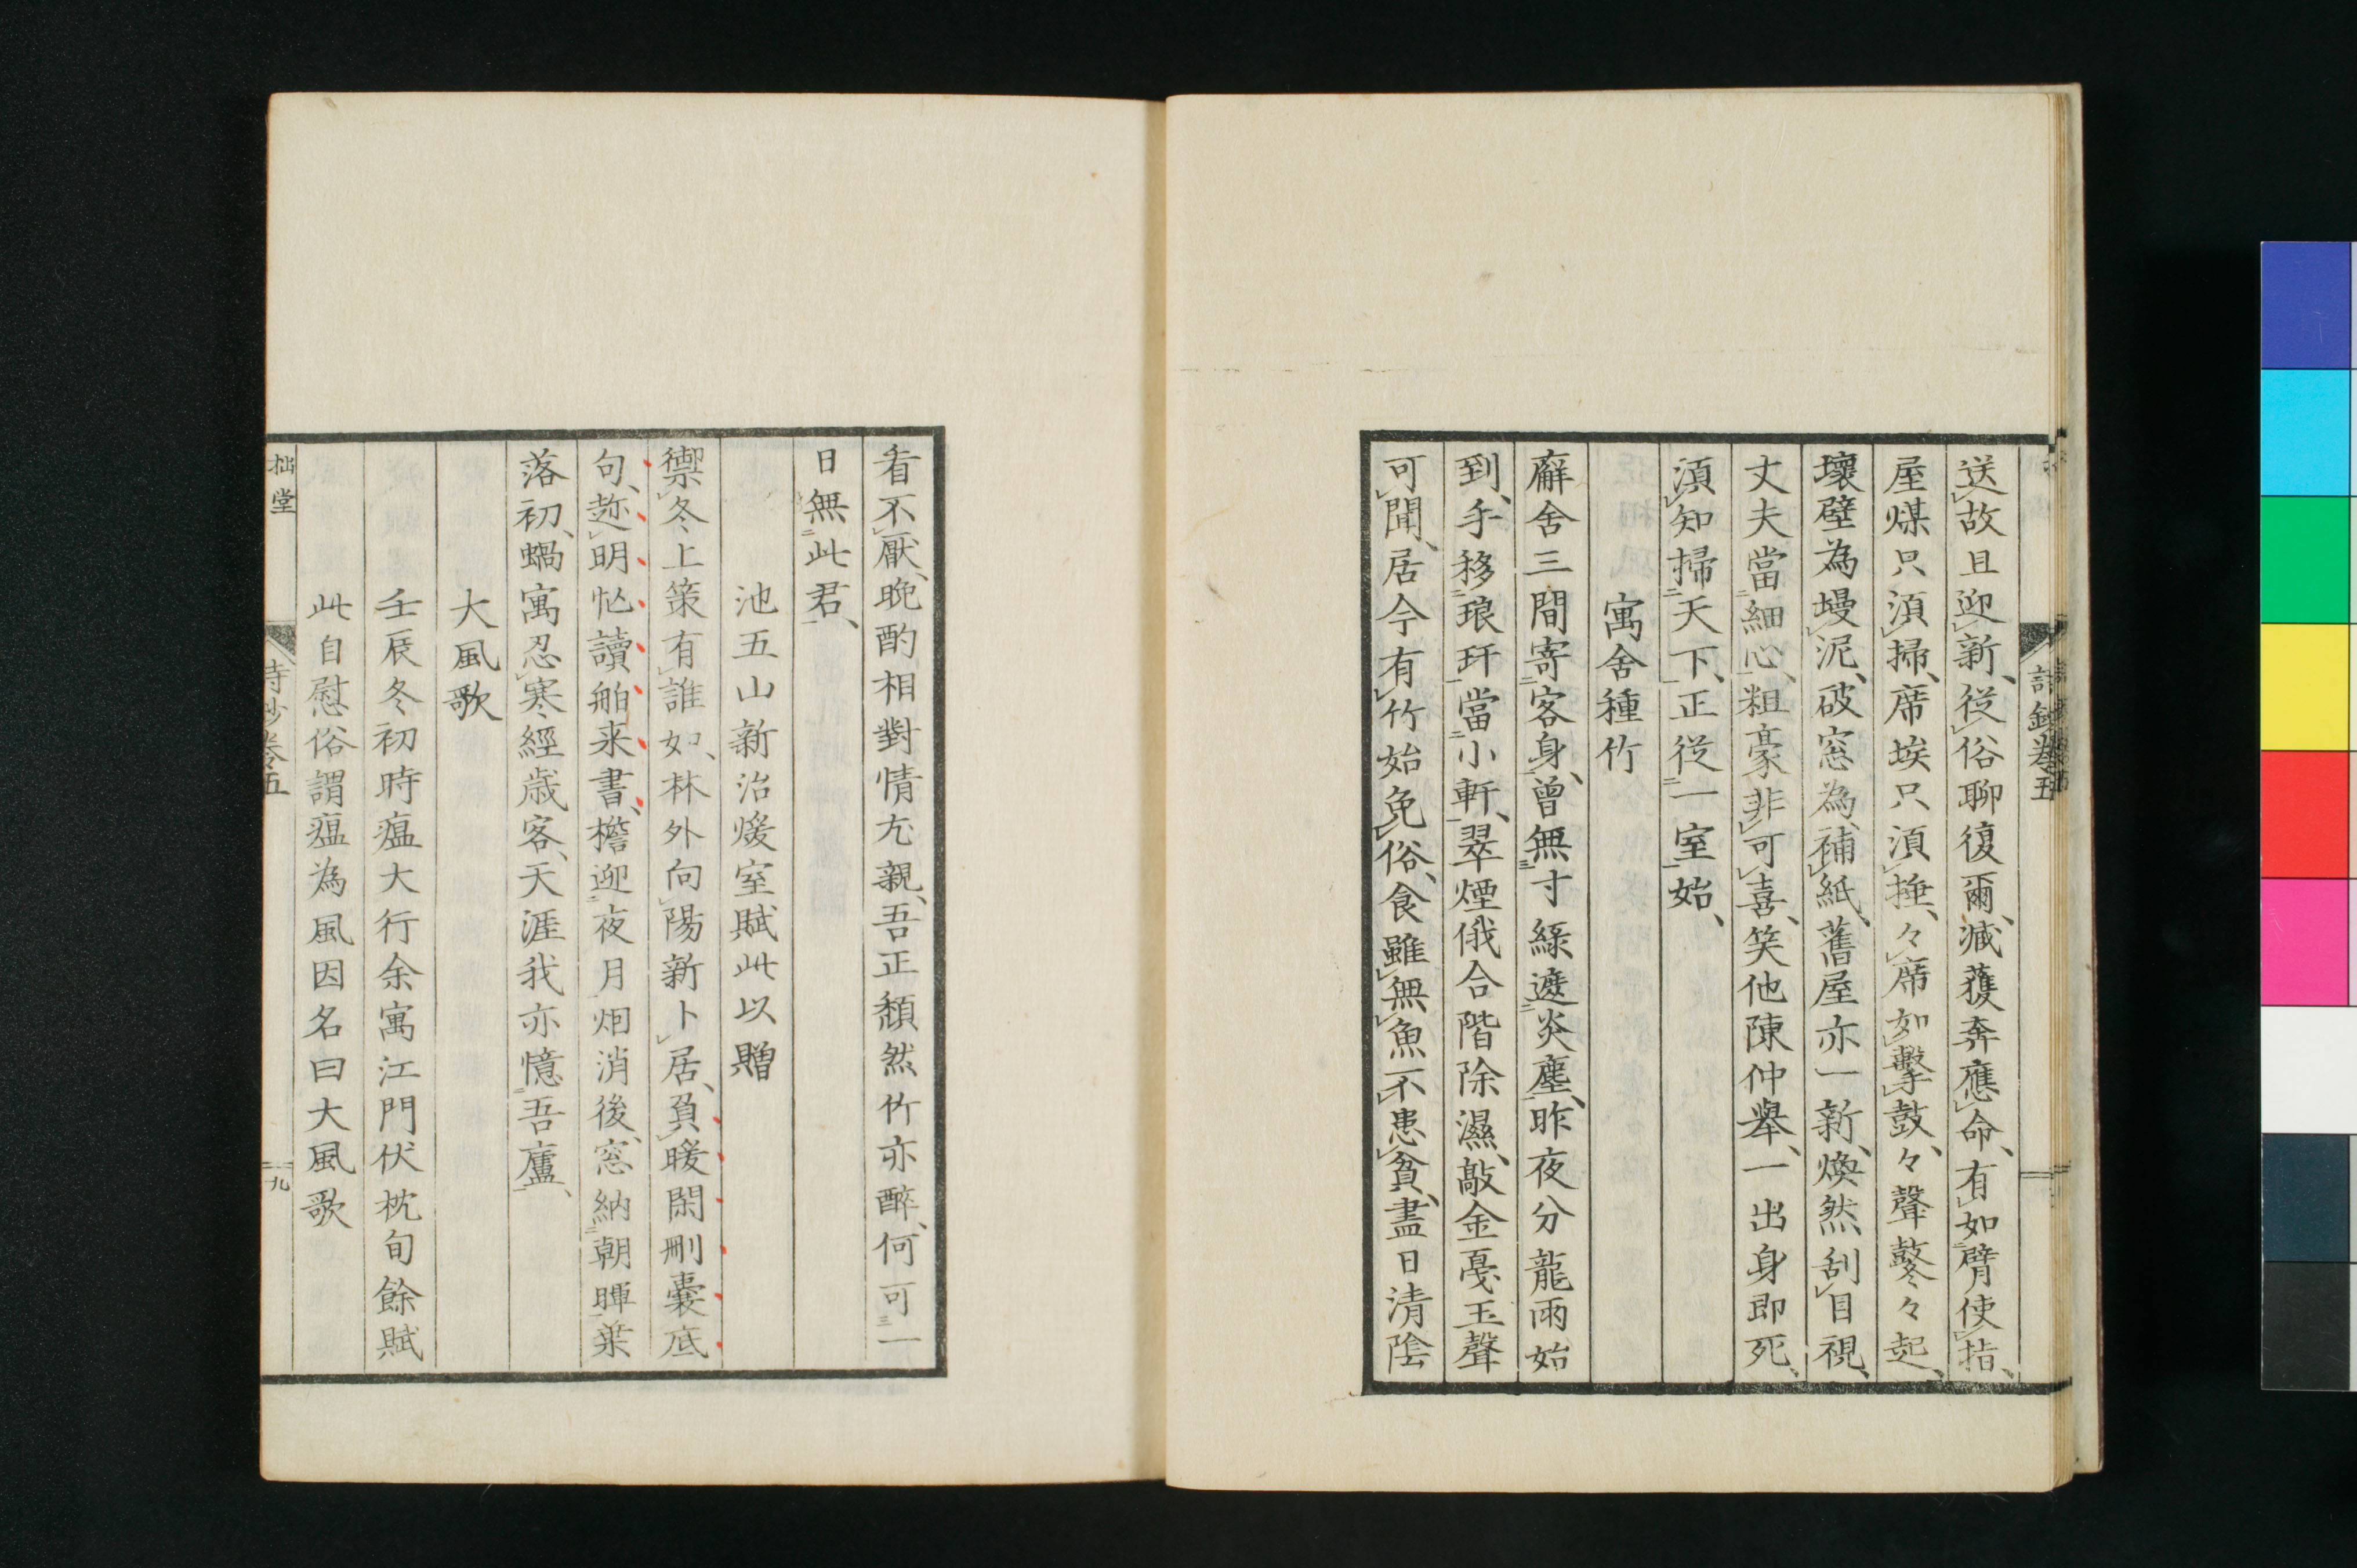 送故且迎新、從俗聊復爾、減獲奔應命、有如臂使指、
屋煤只須掃、席埃只須捶、々席如擊鼓、々聲鼕々起、
壞壁為墁泥、破窓為補紙、舊屋亦一新、煥然刮目視、
丈夫當細心、粗豪非可喜、笑他陳仲舉、一出身即死、
須知掃天下、正從一室始、
寓舍種竹
廨舍三間寄客身、曾無寸綠遮炎塵、昨夜分龍雨始
到、手移琅玕當小軒、翠煙俄合階除濕、敲金戛玉聲
可聞、居今有竹始免俗、食雖無魚不患貧、盡日清陰
看不厭、晚酌相對情尤親、吾正頹然竹亦醉、何可一
日無此君、
池五山新治煖室賦此以贈
禦冬上策有誰如、林外向陽新卜居、負暖閑刪囊底
句、趂明忙讀舶来書、檐迎夜月烟消後、窓納朝暉葉
落初、蝸寓忍寒經歳客、天涯我亦憶吾廬、
大風歌
壬辰冬初時瘟大行余寓江門伏枕旬餘賦
此自慰俗謂瘟為風因名曰大風歌
拙堂
詩鈔卷五
九